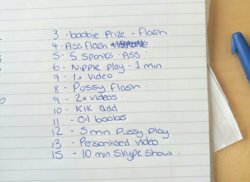 3 - boobie Prize - flash
4 - Ass flash
5 - 5 spanks - Ass
6 - Nipple play - 1 min
7 - 1x video
8 - Pussy flash
9 - 2x videos
10 - Kik add
11 - Oil boobs
12 - 5 min Pussy Play
13 - Personalised video
15 - 10 min Skype show.